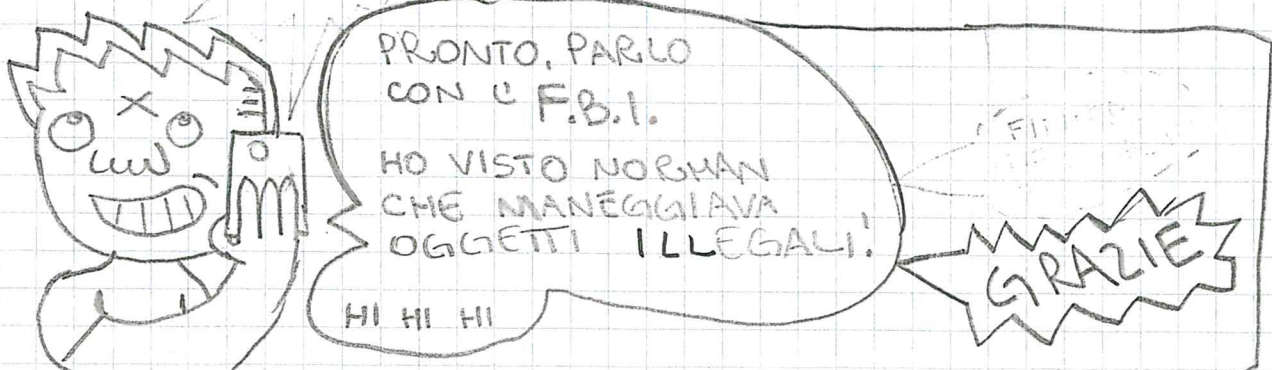 PRONTO, PARLO
CON L' F.B.I.
HO VISTO NORMAN
CHE MANEGGIAVA
OGGETTI ILLEGALI!
HI HI HI
GRAZIE